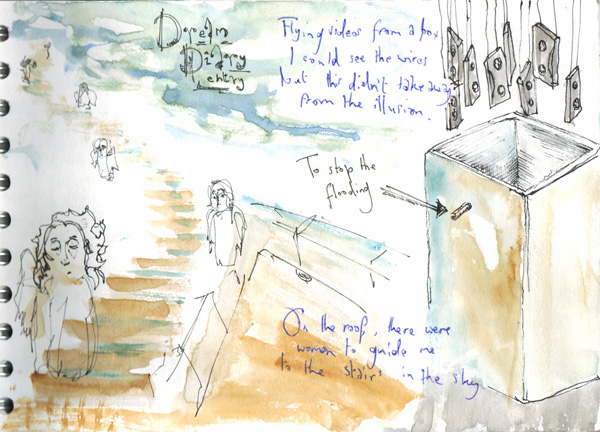 Dream
Diary
entry
Flying videos from a box
I could see the wires
but this didn't take away
from the illusion.
To stop the
flooding
On the roof, there were
women to guide me
to the stairs in the sky.